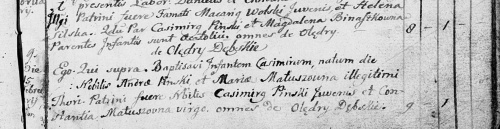 presentes Labor Daniels et
Illji Patrini fuere Famati Macary Wolski Juvenis et Helena
Silska. Qui Par Casimirg Pinski et Magdalena Binaszkowna
Parentes Infantis sunt omnes de Olędry 8 - 1 -
de Olędry Dębskie
9. Ego Qui supra. Baptisavi Infantem Casimirum natum die
Die Nobilis Andreæ Pinski et Mariæ Matuszouna illegitimi
Thori Patrini fuere Nbilis Casimirg Pinski Juvenis et Con-
stantia Matuszowna virgo. omnes de Olędry Dębskie. 9 1